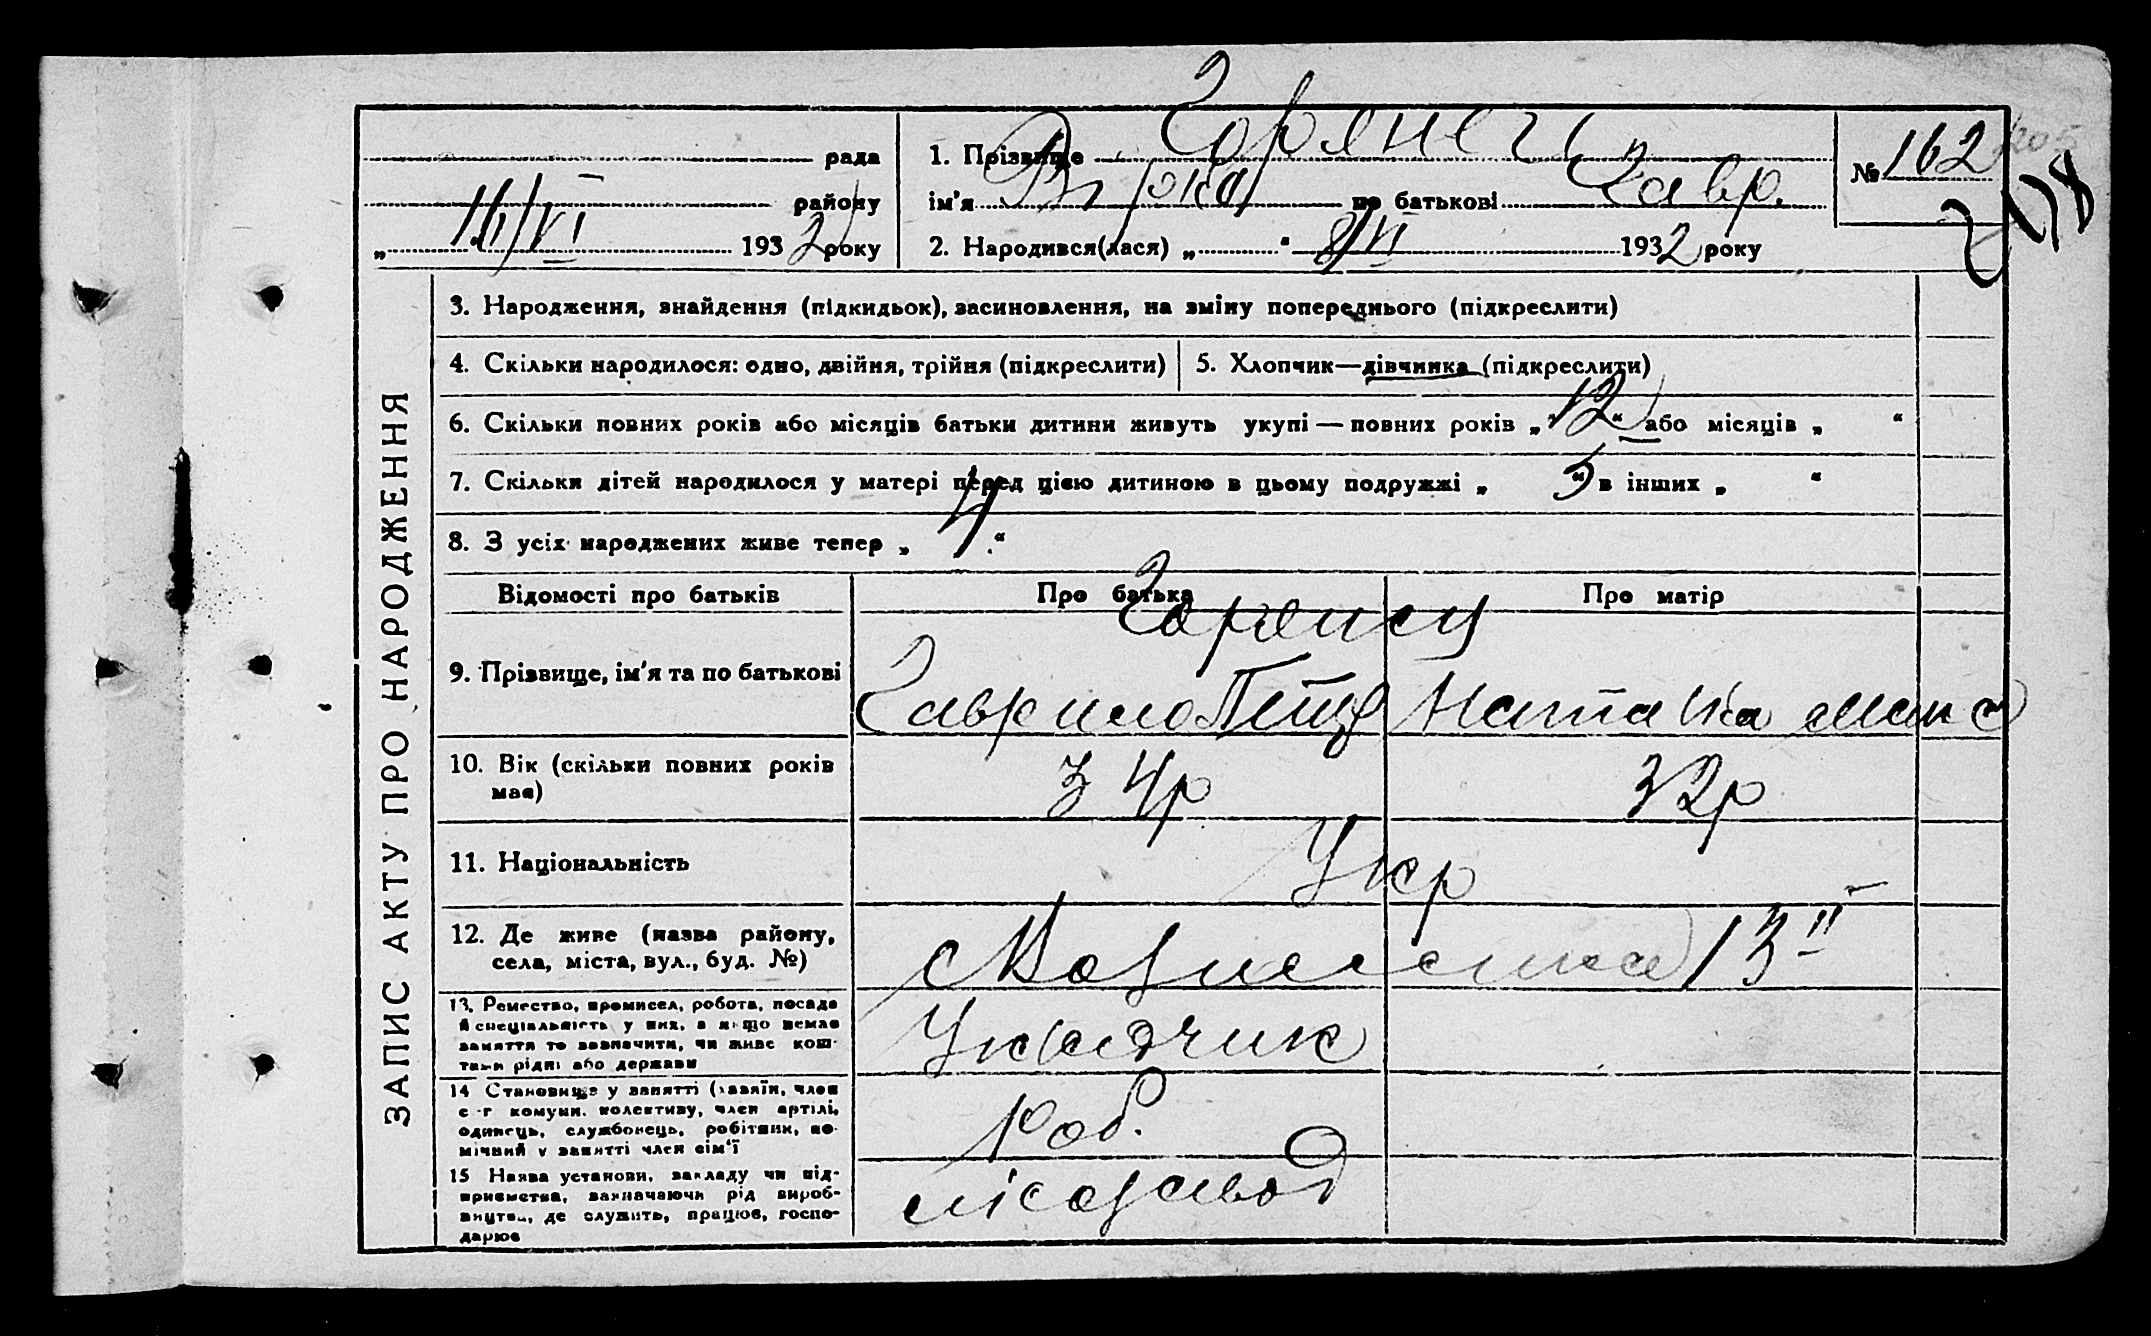 рада
району
„ 16/VI 1932 року
1. Прізвище Горянец
ім'я Вірка по батькові Гавр.
2. Народився(лася) „ “ 8/VI 1932 року
№ 162
205
208
ЗАПИС АКТУ ПРО НАРОДЖЕННЯ
3. Народження, знайдення (підкидьок), засиновлення, на зміну попереднього (підкреслити)
4. Скільки народилося: одно, двійня, трійня (підкреслити)
5. Хлопчик—дівчинка (підкреслити)
6. Скільки повних років або місяців батьки дитини живуть укупі — повних років „12“ або місяців „ “
7. Скільки дітей народилося у матері перед цією дитиною в цьому подружжі „ 5“ в інших „ “
8. З усіх народжених живе тепер „ 4 “
Відомості про батьків
Про батька
Про матір
9. Прізвище, ім'я та по батькові
Горянец
Гаврило Петр
Наталка
10. Вік (скільки повних років
має)
34р
32р
11. Національність
Укр
12. Де живе (назва району,
села, міста, вул., буд. №)
Вознесенка 13 II
13. Ремество, промисел, робота, посада
й спеціальність у них, а якщо немає
заняття то зазначити, чи живе кош-
тами рідні або держави
Укладчик
14 Становище у занятті (хазяїн, член
с-г комуни, колективу, член артілі,
одинець, службовець, робітник, по-
мічний у занятті член сім'ї
Роб.
15 Назва установи, закладу чи під-
приємства, зазначаючи рід вироб-
ництва, де служить, працює, госпо-
дарює
лісозавод